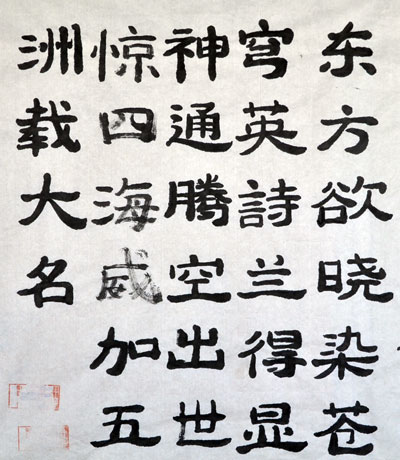 东方欲晓染苍
穹英詩兰得显
神通腾空出世
惊四海威加五
洲载大名